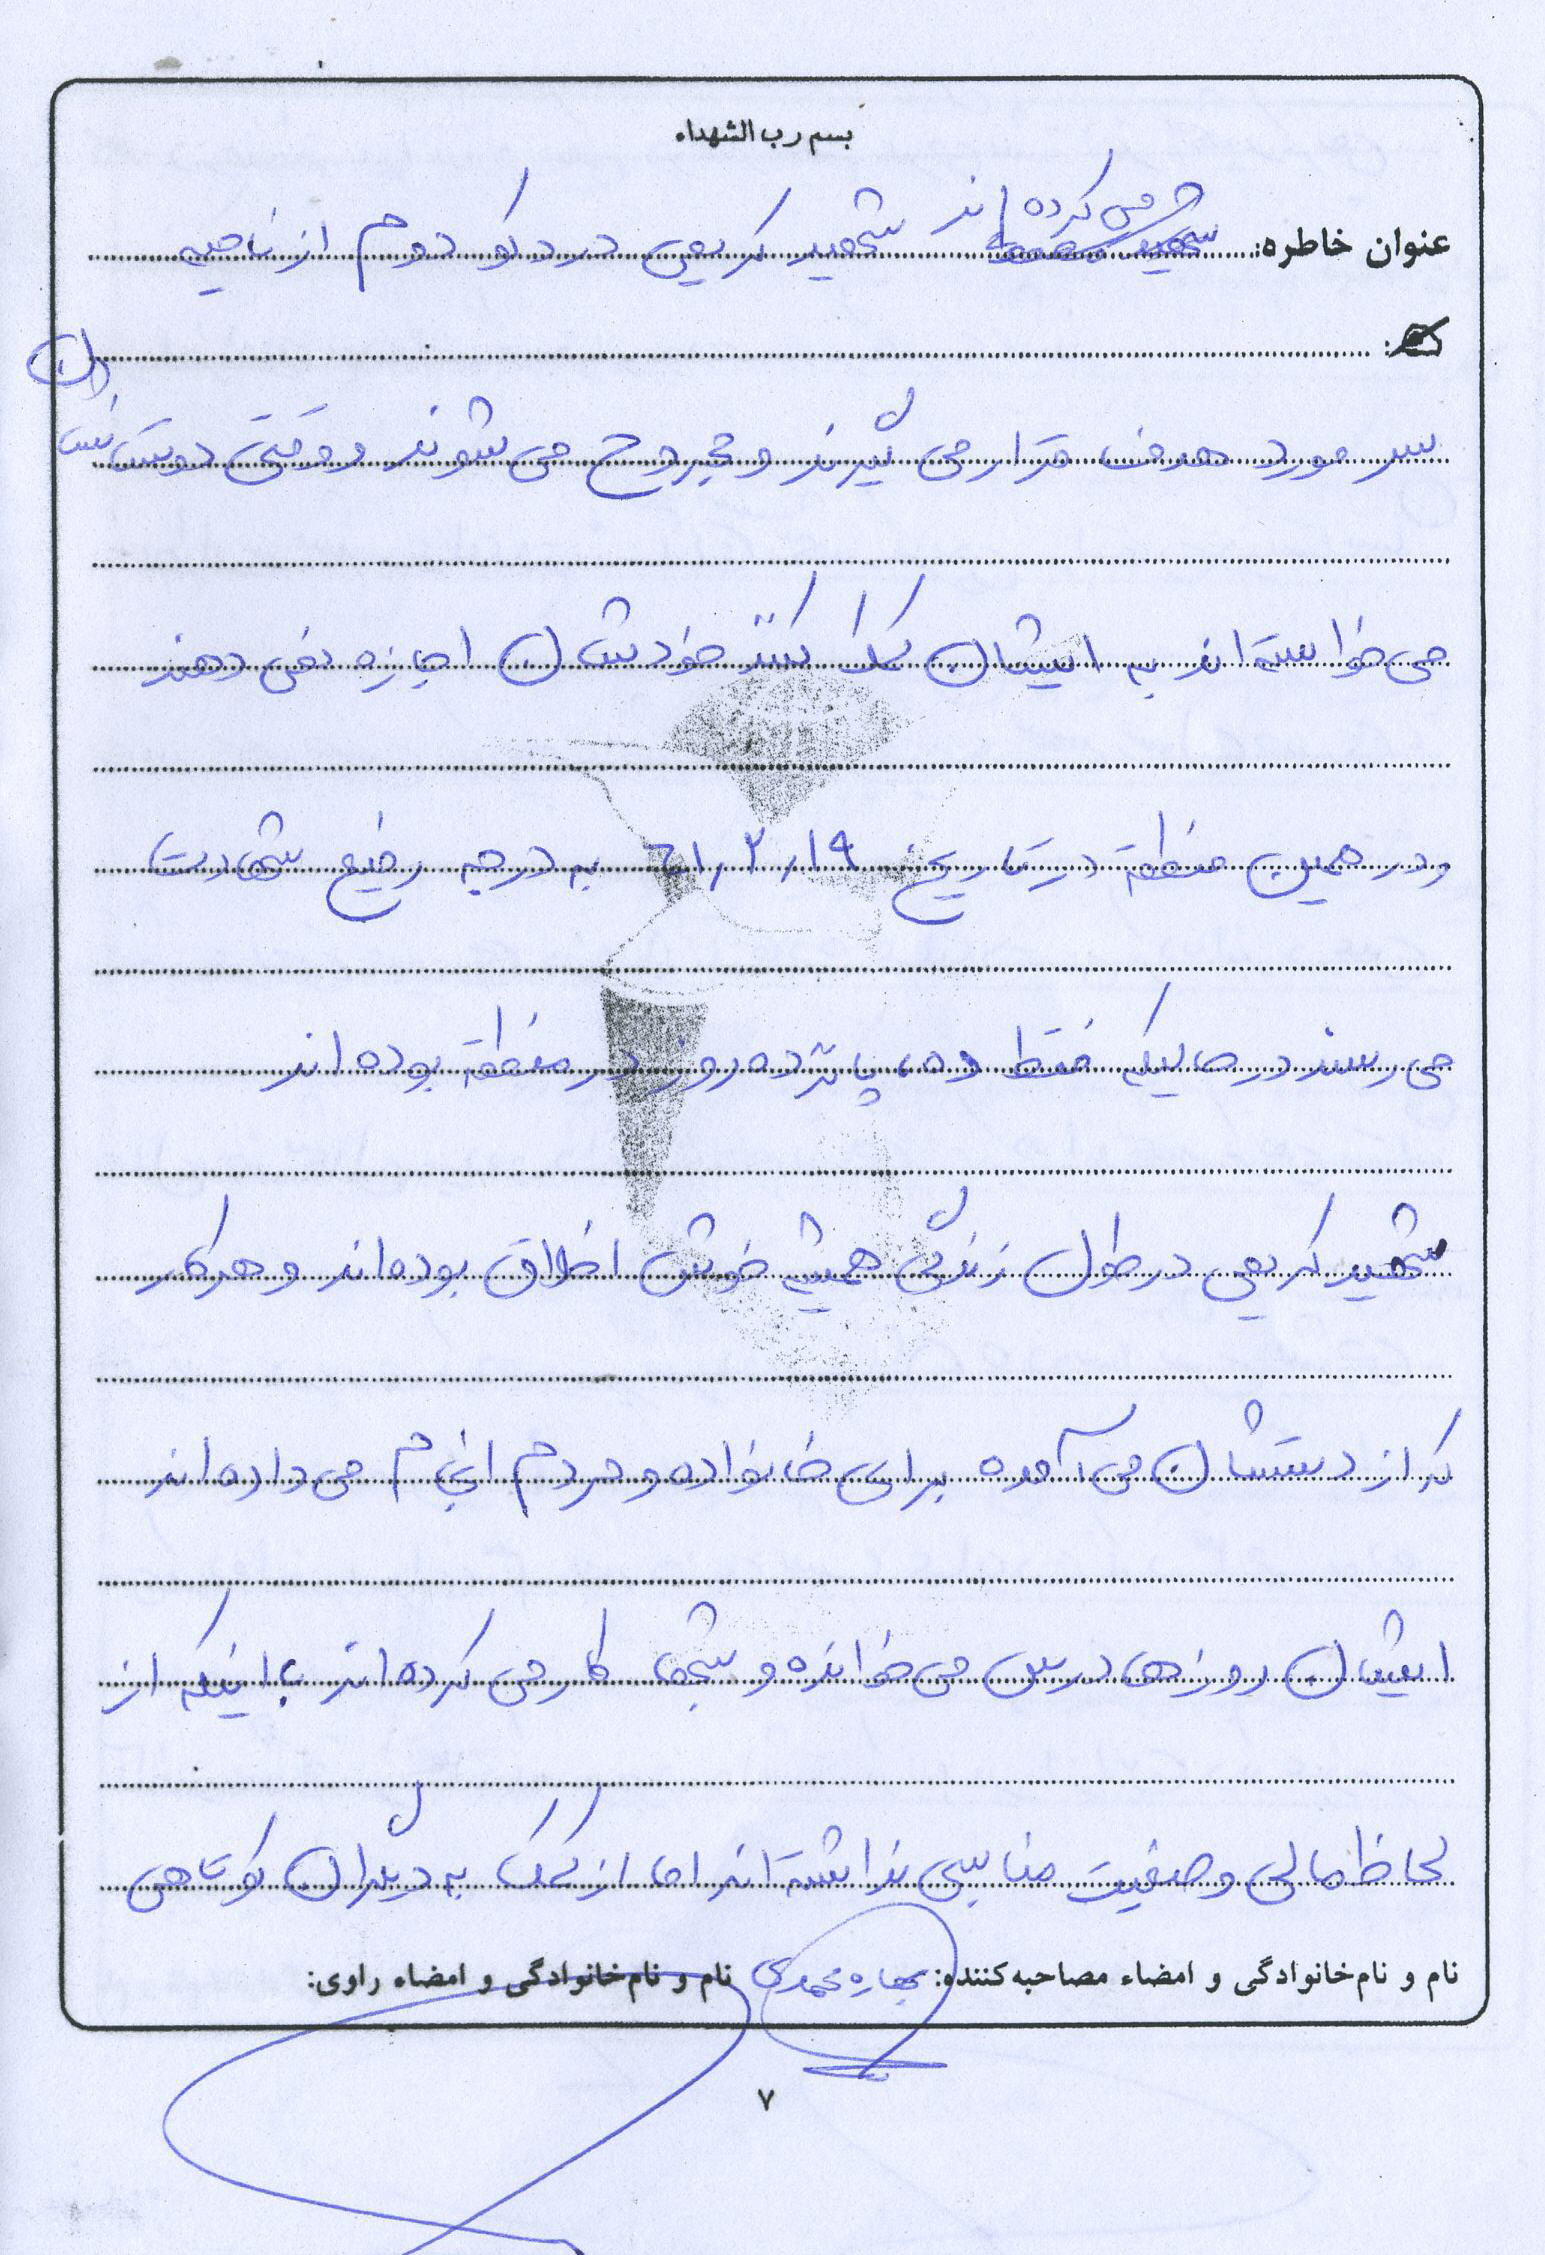 بسم رب الشهداء
عنوان خاطره: می کرده اند شهید کریمی در دکو دوم از ناحیه
سر مورد هدف قرار می گیرند و مجروح می شوند و وقتی دوستانشان
می خواسته اند به ایشان کمک کنند خودشان اجازه نمی دهند
و در همین منطقه در تاریخ ۶۱٫۲٫۱۹ به درجه رفیع شهادت
می رسند در حالیکه فقط ده، پانزده روز در منطقه بوده اند
شهید کریمی در طول زندگی همیشه خوش اخلاق بوده اند و هر کار
که از دستشان می آمده برای خانواده و مردم انجام می داده اند
ایشان روزها درس می خوانده و شبها کار می کرده اند با اینکه از
لحاظ مالی وضعیت مناسبی نداشته اند اما از کمک به دیگران کوتاهی
نام و نام خانوادگی و امضاء مصاحبه کننده: بهاره محمدی نام و نام خانوادگی و امضاء راوی:
۷